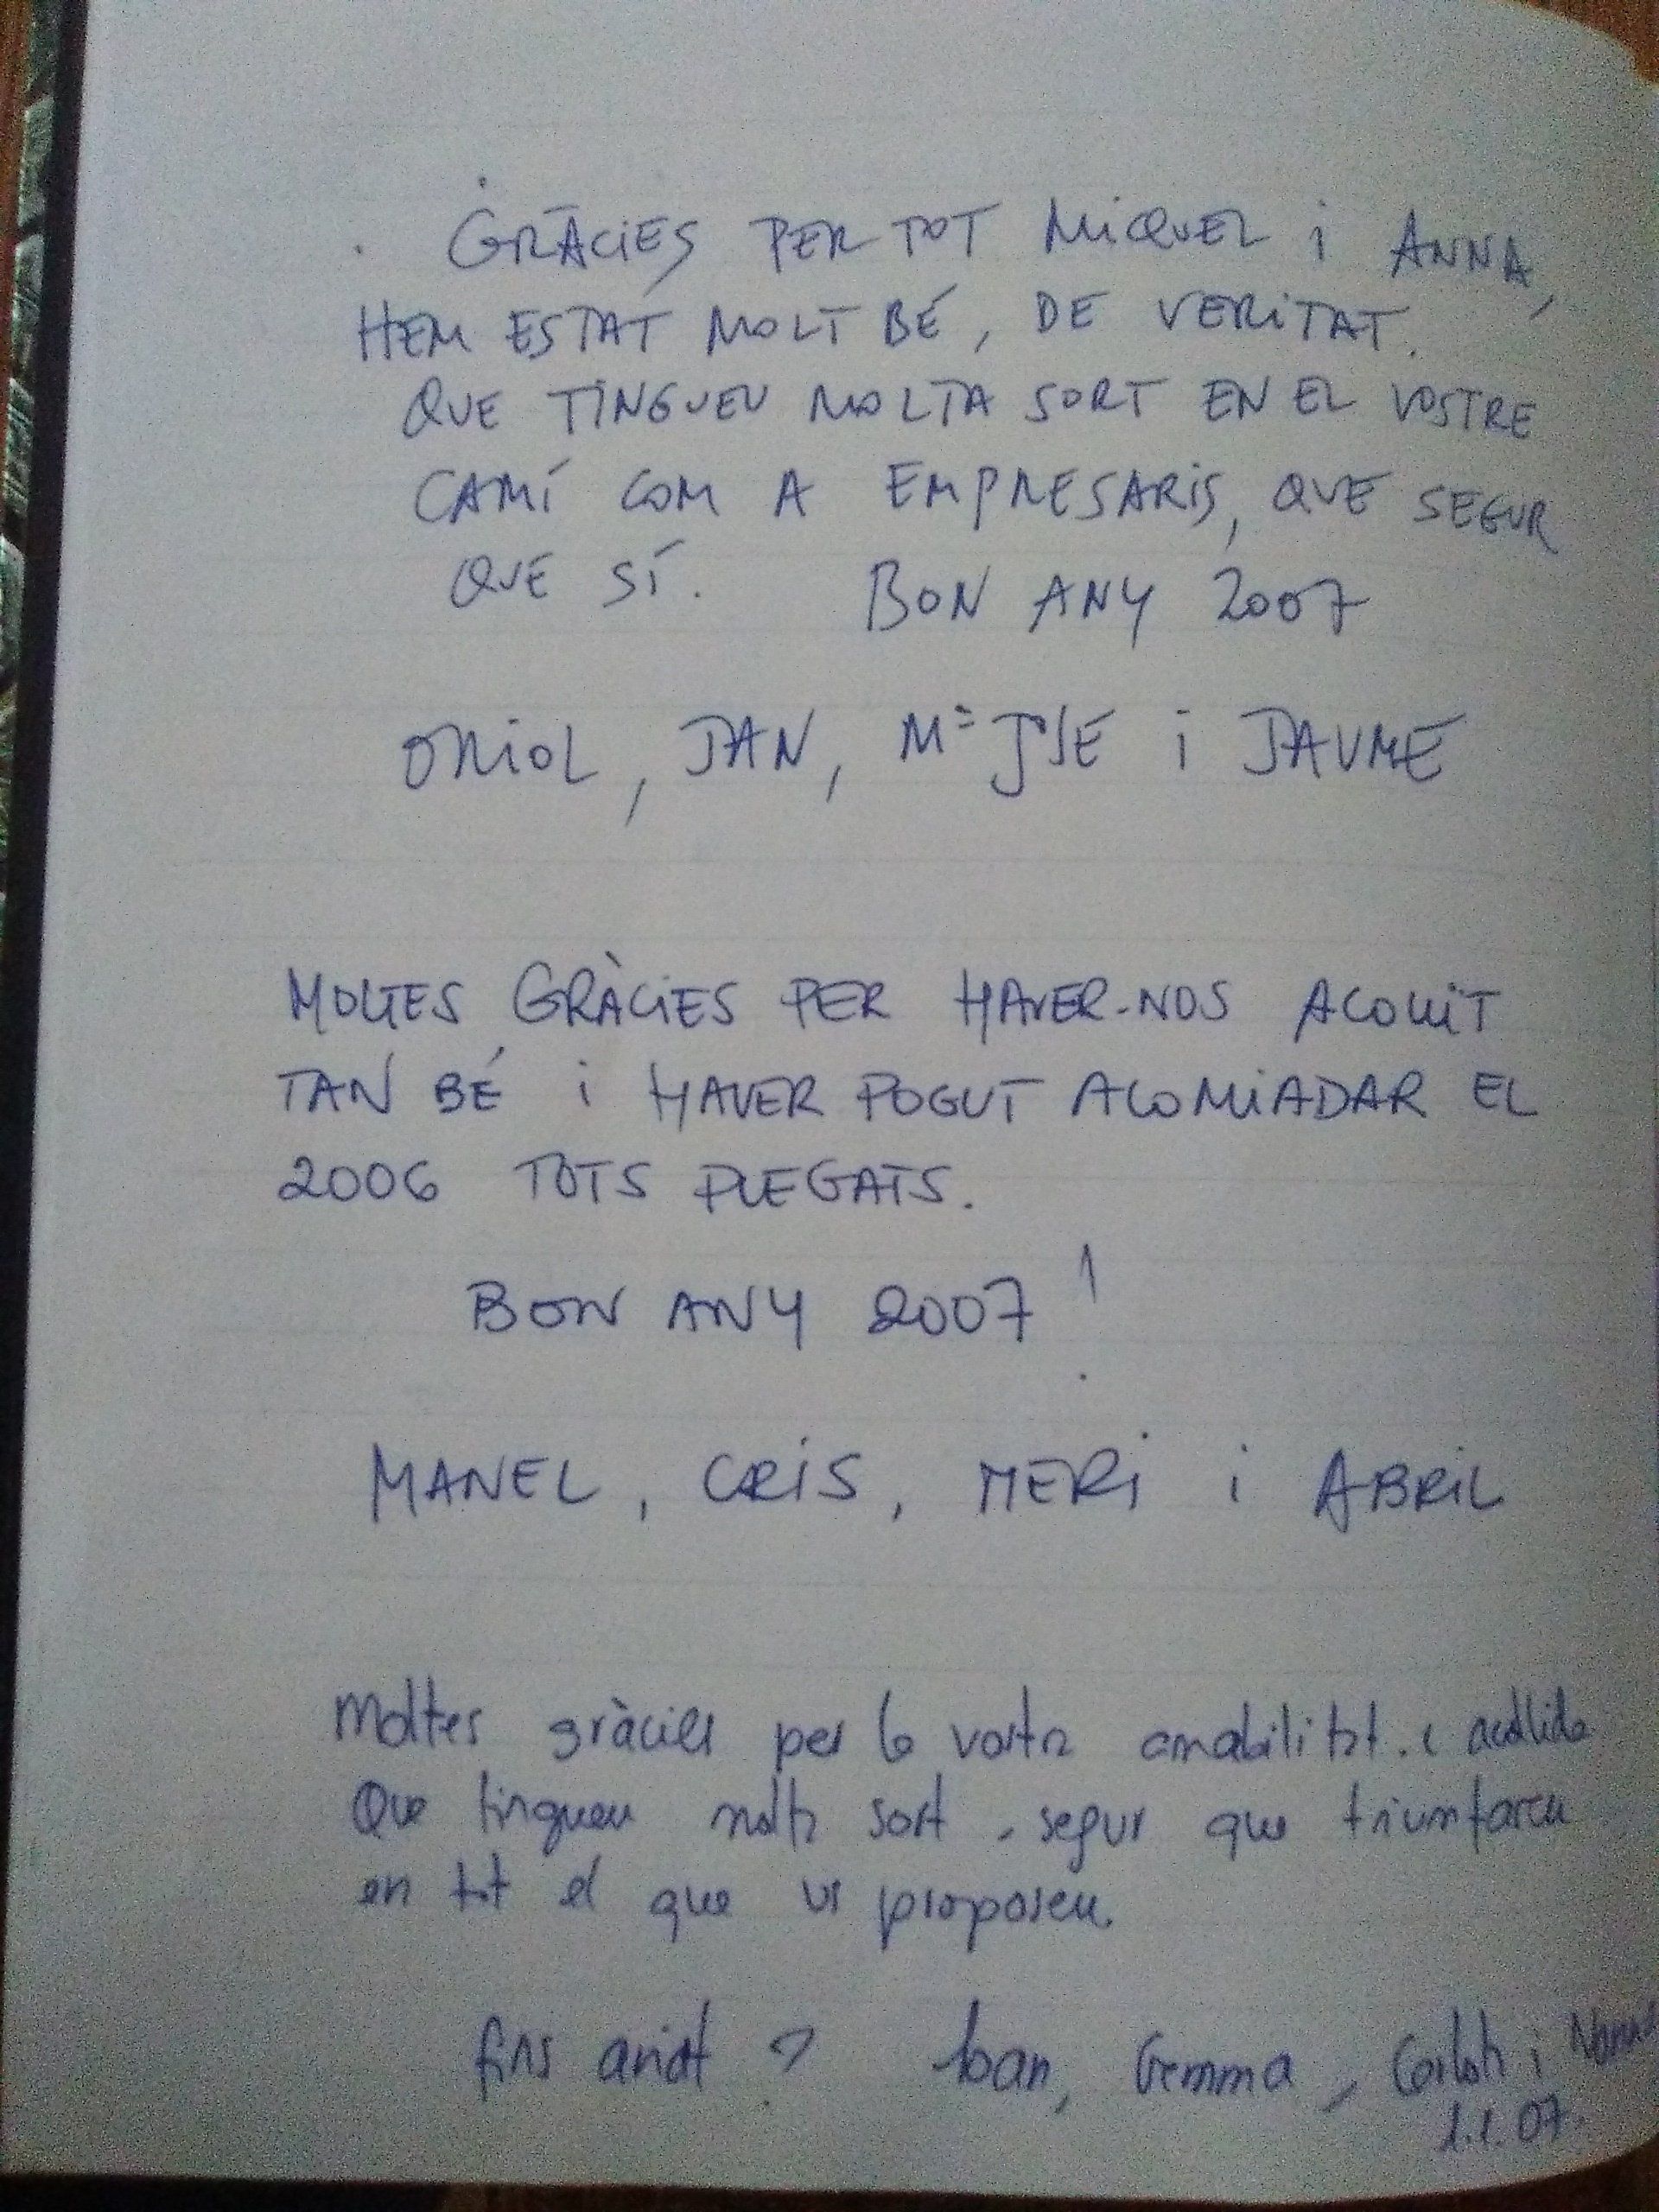 GRÀCIES PER TOT MIQUEL i ANNA,
HEM ESTAT MOLT BÉ, DE VERITAT.
QUE TINGUEU MOLTA SORT EN EL VOSTRE
CAMÍ COM A EMPRESARIS, QUE SEGUR
QUE SÍ. BON ANY 2007
ORIOL, JAN, Mª JOSE i JAUME
MOLTES GRÀCIES PER HAVER-NOS ACOLLIT
TAN BÉ i HAVER POGUT ACOMIADAR EL
2006 TOTS PLEGATS.
BON ANY 2007!
MANEL, CRIS, MERI i ABRIL
Moltes gràcies per la vostra amabilitat i acollida
Que tingueu molta sort, segur que triumfareu
en tot el que us proposeu.
fins aviat Joan, Gemma, Carlota i
1.1.07.